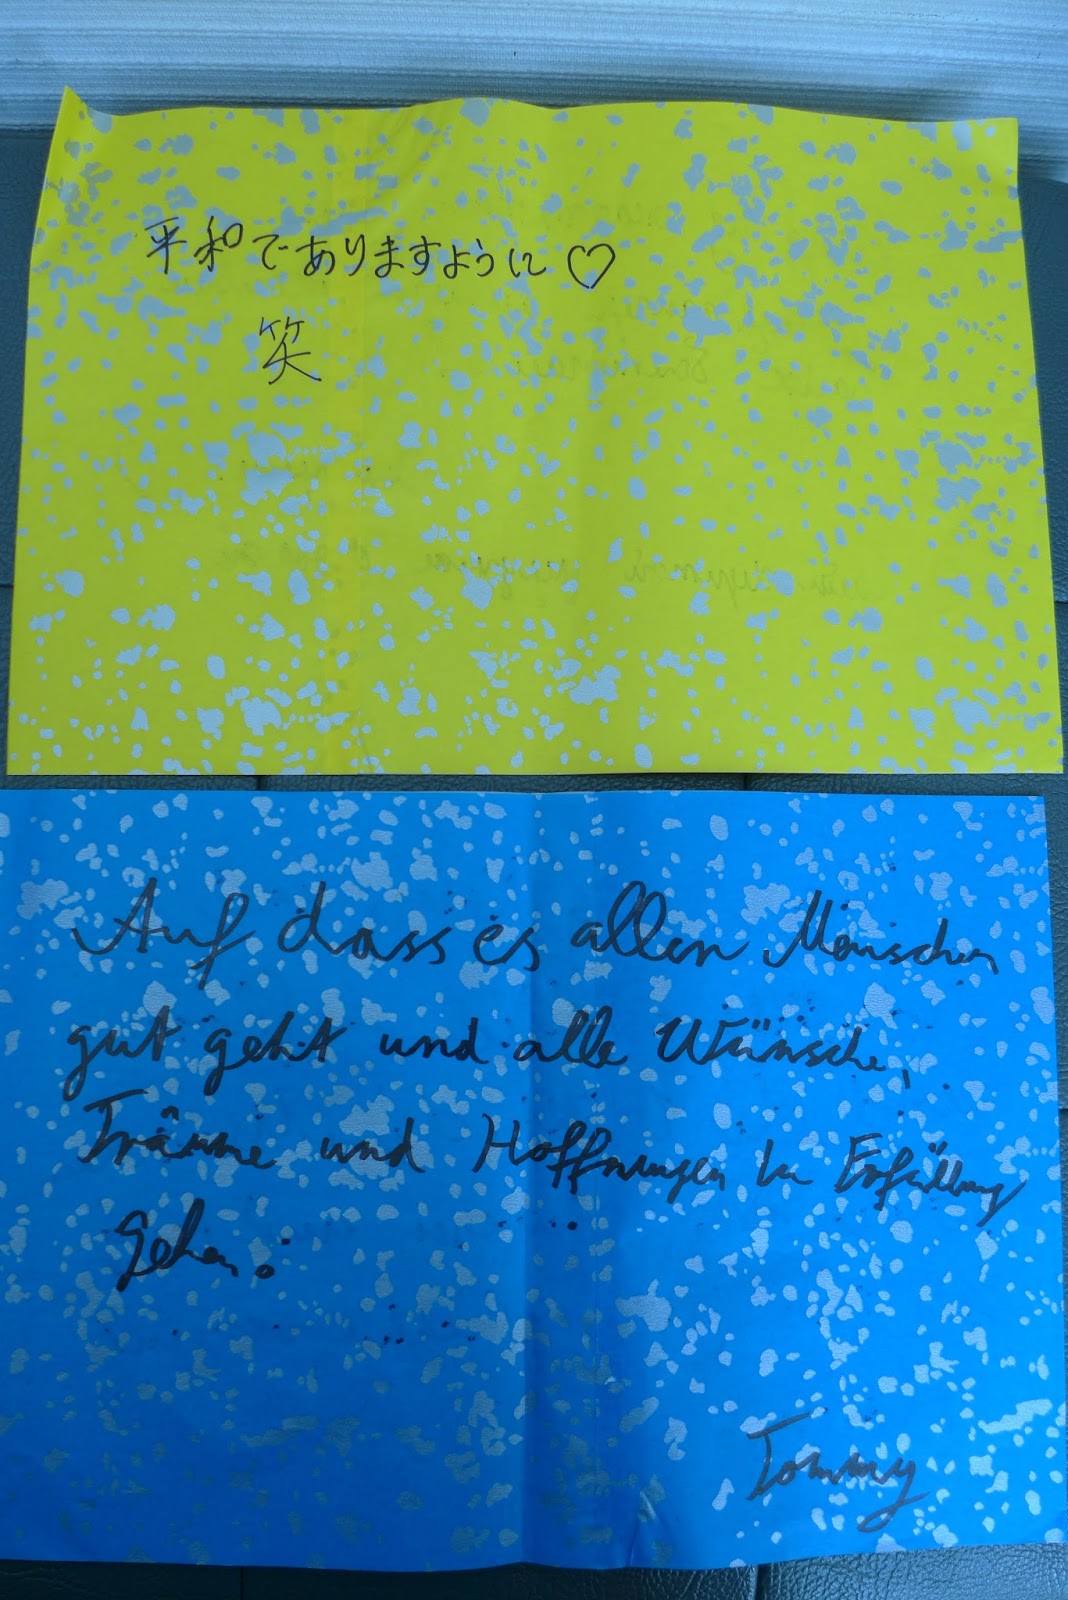 平和でありますように♡
笑
Auf dass es allen Menschen
gut geht und alle Wünsche,
Träume und Hoffnungen in Erfüllung
gehen.
Tommy